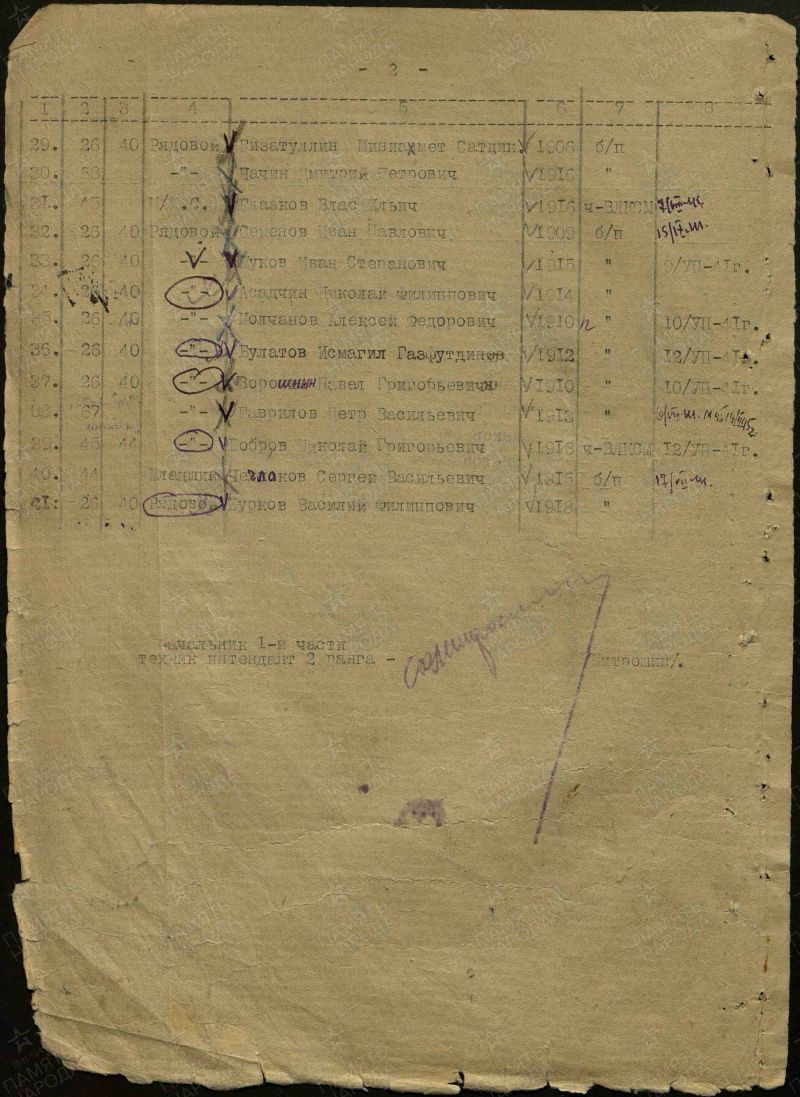 - 2 -
1 2 3 4 5 6 7 8
29. 26 40 Рядовой Гизатуллин Миниахмет Сатдин. 1906 б/п
30. 68 -"- Чачин Дмитрий Петрович 1916 "
31. 45 Глазков Влас Ильич 1916 ч-ВЛКСМ
32. 26 40 Рядовой Семенов Иван Павлович 1909 б/п
33. 26 40 -"- Жуков Иван Степанович 1915 " 9/УП-41г.
34. 26 40 -"- Асадчин Николай Филиппович 1914 "
35. 26 40 -"- Молчанов Алексей Федорович 1910 " 10/УП-41г.
36. 26 40 -"- Булатов Исмагил Газфутдинов 1912 " 12/УП-41г.
37. 26 40 -"- Воронин Павел Григорьевич 1910 " 10/УП-41г.
38. 67 -"- Гаврилов Петр Васильевич 1913 "
39. 45 44 -"- Бобров Николай Григорьевич 1918 ч-ВЛКСМ 12/УП-41г.
40. 44 Младший Сергей Васильевич 1915 б/п
41. 26 40 Рядовой Бурков Василий Филиппович 1918 "
Начальник 1-й части
техник интендант 2 ранга - Митрохин/.